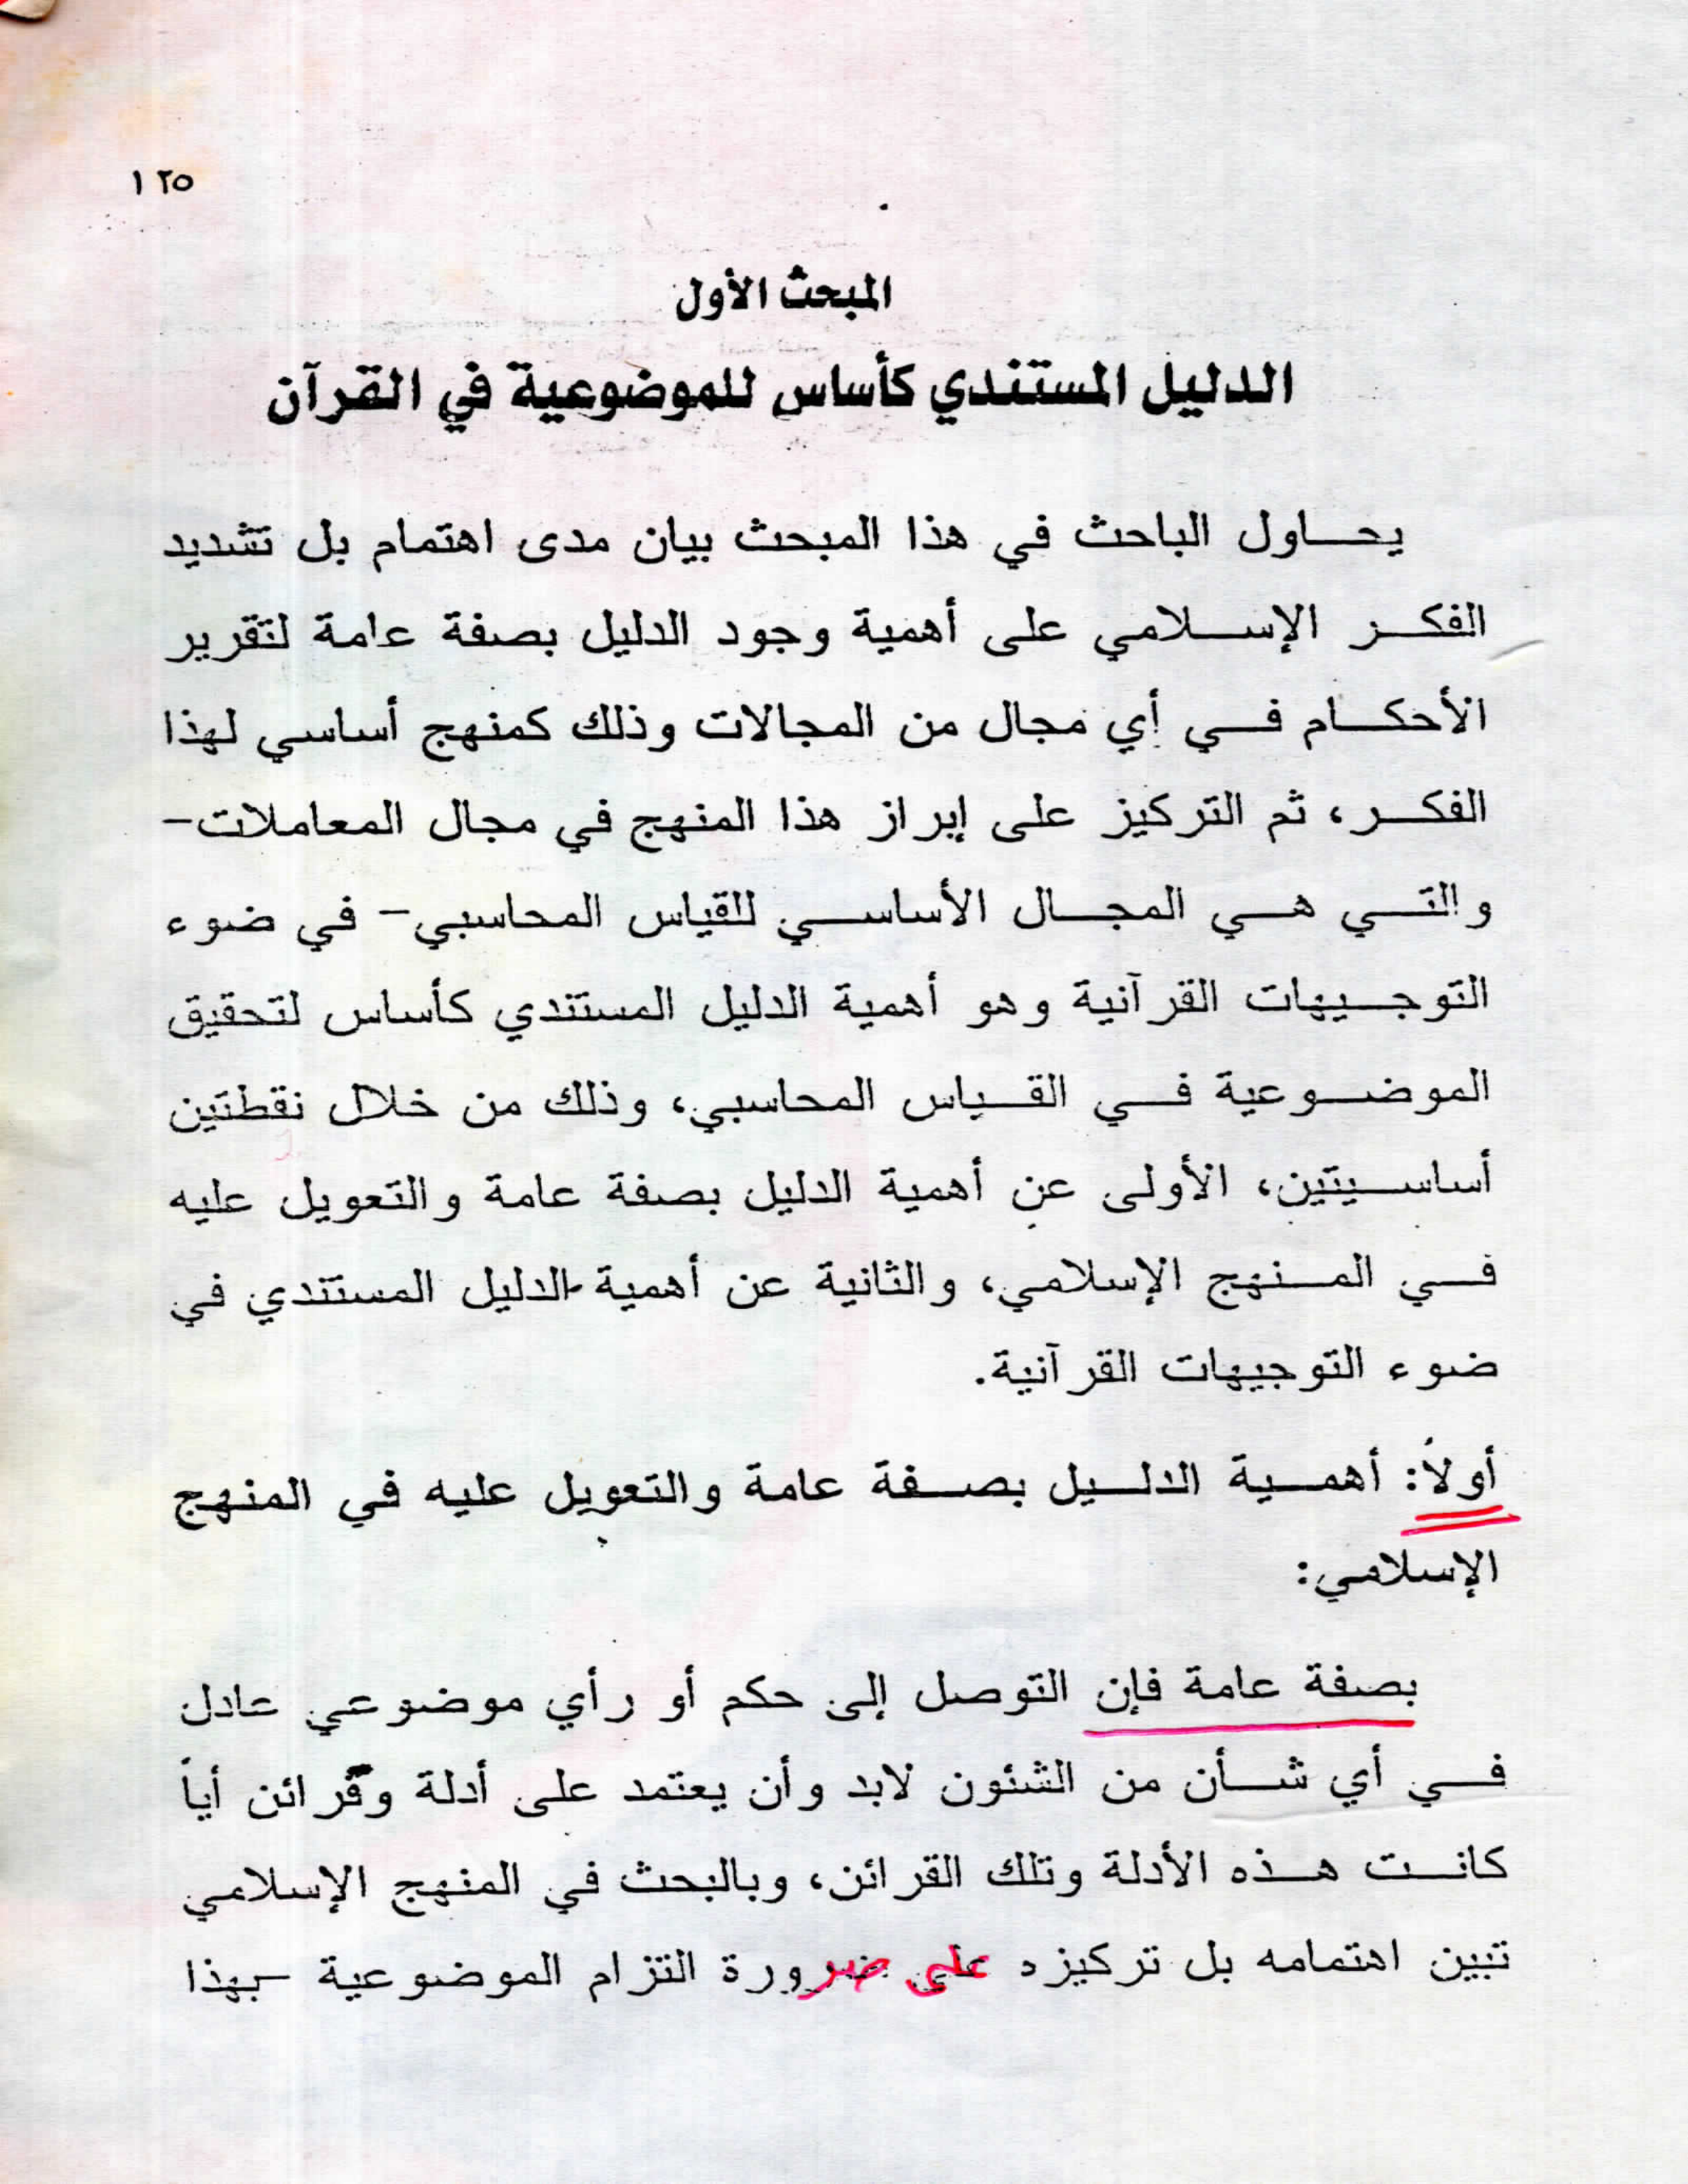 ١٢٥
المبحث الأول
الدليل المستندي كأساس للموضوعية في القرآن
يحاول الباحث في هذا المبحث بيان مدى اهتمام بل تشديد
الفكر الإسلامي على أهمية وجود الدليل بصفة عامة لتقرير
الأحكام في أي مجال من المجالات وذلك كمنهج أساسي لهذا
الفكر، ثم التركيز على إبراز هذا المنهج في مجال المعاملات-
والتي هي المجال الأساسي للقياس المحاسبي- في ضوء
التوجيهات القرآنية وهو أهمية الدليل المستندي كأساس لتحقيق
الموضوعية في القياس المحاسبي، وذلك من خلال نقطتين
أساسيتين، الأولى عن أهمية الدليل بصفة عامة والتعويل عليه
في المنهج الإسلامي، والثانية عن أهمية الدليل المستندي في
ضوء التوجيهات القرآنية.
أولاً: أهمية الدليل بصفة عامة والتعويل عليه في المنهج
الإسلامي:
بصفة عامة فإن التوصل إلى حكم أو رأي موضوعي عادل
في أي شأن من الشئون لابد وأن يعتمد على أدلة وقرائن أياً
كانت هذه الأدلة وتلك القرائن، وبالبحث في المنهج الإسلامي
تبين اهتمامه بل تركيزه على ضرورة التزام الموضوعية -بهذا